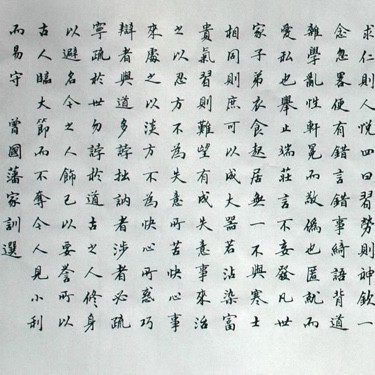 求仁則人悅四習勞則神欽一
念忽畧便有錯言錯事綺語背道
雜學亂性軒冕而敵偽也匿就而
愛私也舉止端莊言不妄發凡世
家子弟衣食起居無一不與寒士
相同則庶可以成大器若沾染富
貴氣習則難望有成失意事來治
之以忍方不為失意所苦快心事
來處之以淡方不為快心所惑巧
辯者與道多悖拙訥者涉者必疏
寧疏於世勿悖於道古之人修身
以避名今之人飾己以要譽所以
古人臨大節而不奪今人見小利
而易守 曾國藩家訓選